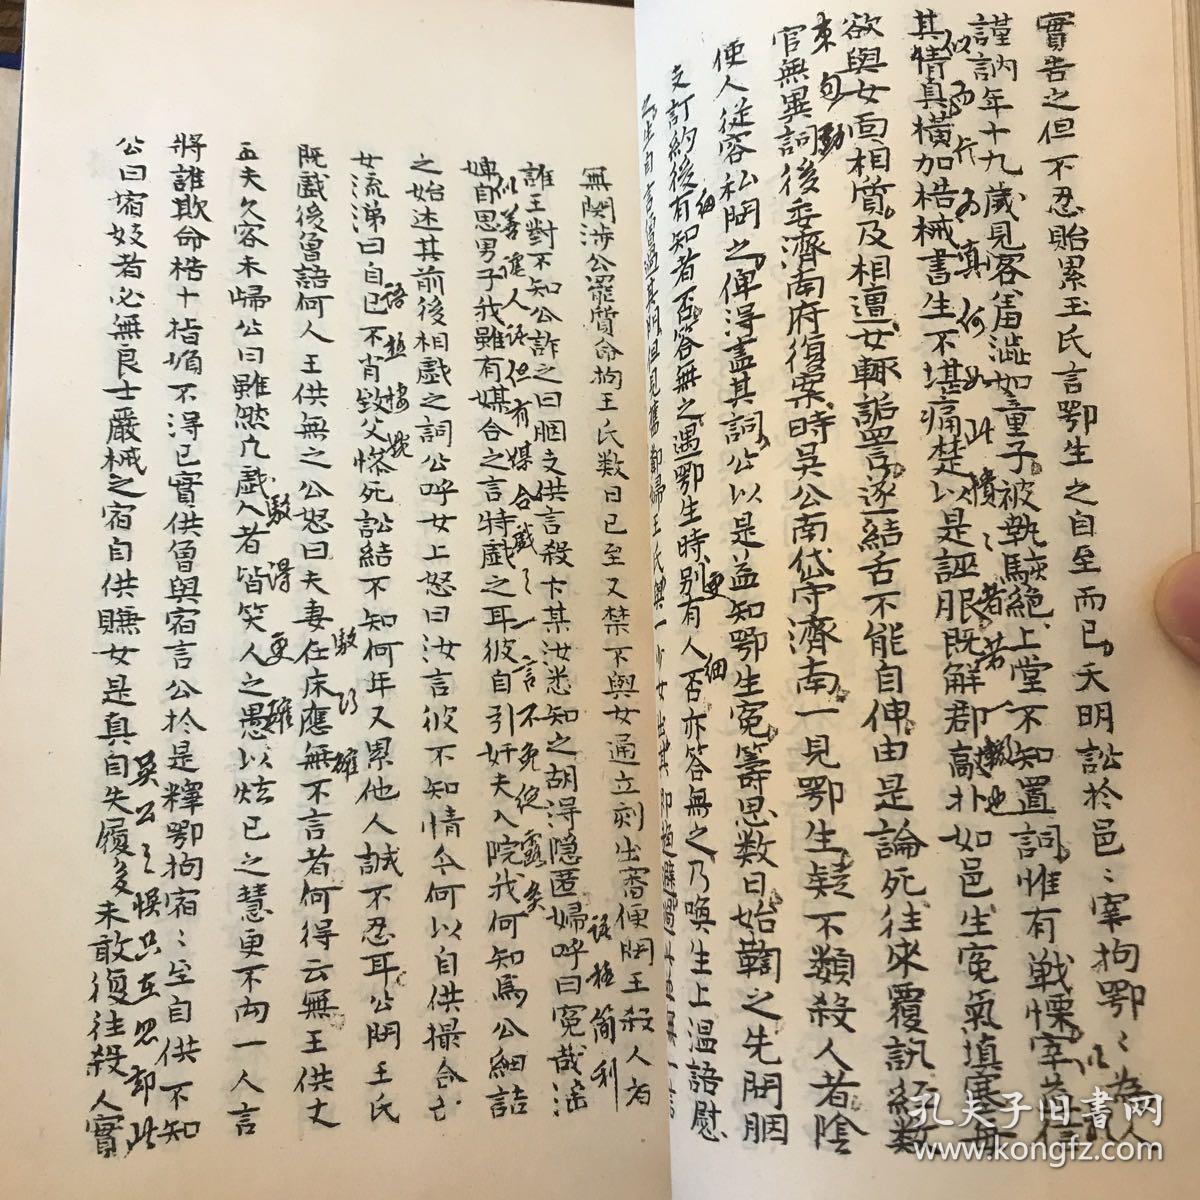 實告之但不忍貽累王氏言鄂生之自至而已天明訟於邑〻宰拘鄂〻為人
謹訥年十九歲見客羞澁如童子被執駭絕上堂不知置詞惟有戰慄宰益信
其情真橫加梏械書生不堪痛楚以是誣服既解郡敲扑如邑生冤氣填塞每
欲與女面相質及相遭女輒詬詈遂結舌不能自伸由是論死往來覆訊經數
官無異詞後委濟南府復案時吳公南岱守濟南一見鄂生疑不類殺人者陰
使人從容私問之俾得盡其詞公以是益知鄂生冤籌思數日始鞫之先問胭
支訂約後有知者否答無之遇鄂生時別有人否亦答無之乃喚生上溫語慰
無関涉公罷質命拘王氏数日已至又禁不與女通立刻出審便問王殺人者
誰王對不知公詐之曰胭支供言殺卞某汝悉知之胡得隱匿婦呼曰冤哉淫
婢自思男子我雖有媒合之言特戲之耳彼自引奸夫入院我何知焉公細詰
之始述其前後相戲之詞公呼女上怒曰汝言彼不知情今何以自供撮合
女流涕曰自己不肖致父慘死訟結不知何年又累他人誠不忍耳公問王氏
既戲後曾語何人王供無之公怒曰夫妻在床應無不言者何得云無王供丈
夫久客未歸公曰雖然凢戲人者皆笑人之愚以炫已之慧更不向一人言
將誰欺命梏十指婦不得已實供曾與宿言公於是釋鄂拘宿〻至自供不知
公曰宿妓者必無良士嚴械之宿自供賺女是真自失履後未敢復往殺人實
以而行為真何如此憒〻者若一轍也
東句勁
細
更
細
語極簡利
似善謔人語但有媒合戲之一言不免從露矣
語極樓
駁得更確
駁得確
吳公之悞只在忽卻此
孔夫子旧書网
www.kongfz.com